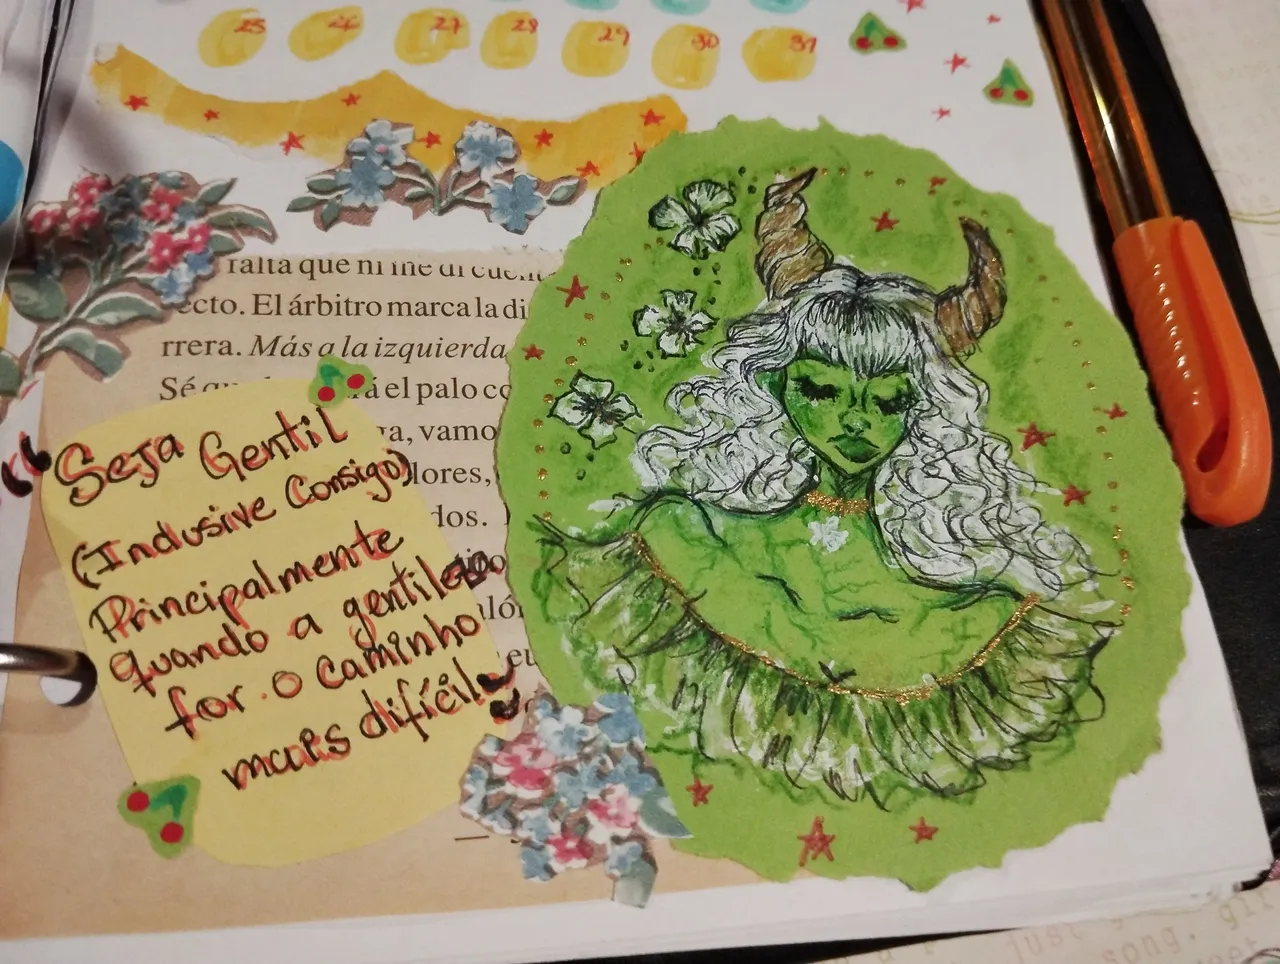 25 26 27 28 29 30 31
falta que ni me di cuent
ecto. El árbitro marca la di
rrera. Más a la izquierda
Sé á el palo co
a, vamo
lores,
dos.
“Seja Gentil
(Inclusive Consigo)
Principalmente
quando a gentileza
for o caminho
mais difícil”
eu
just
song. gi